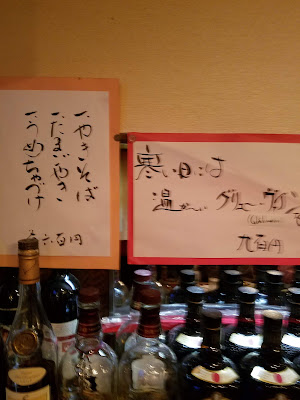 一、やきそば
一、たまごやき
一、うめちゃづけ
各 六百円
寒い日には
温かい グリュー・ヴァイン
九百円